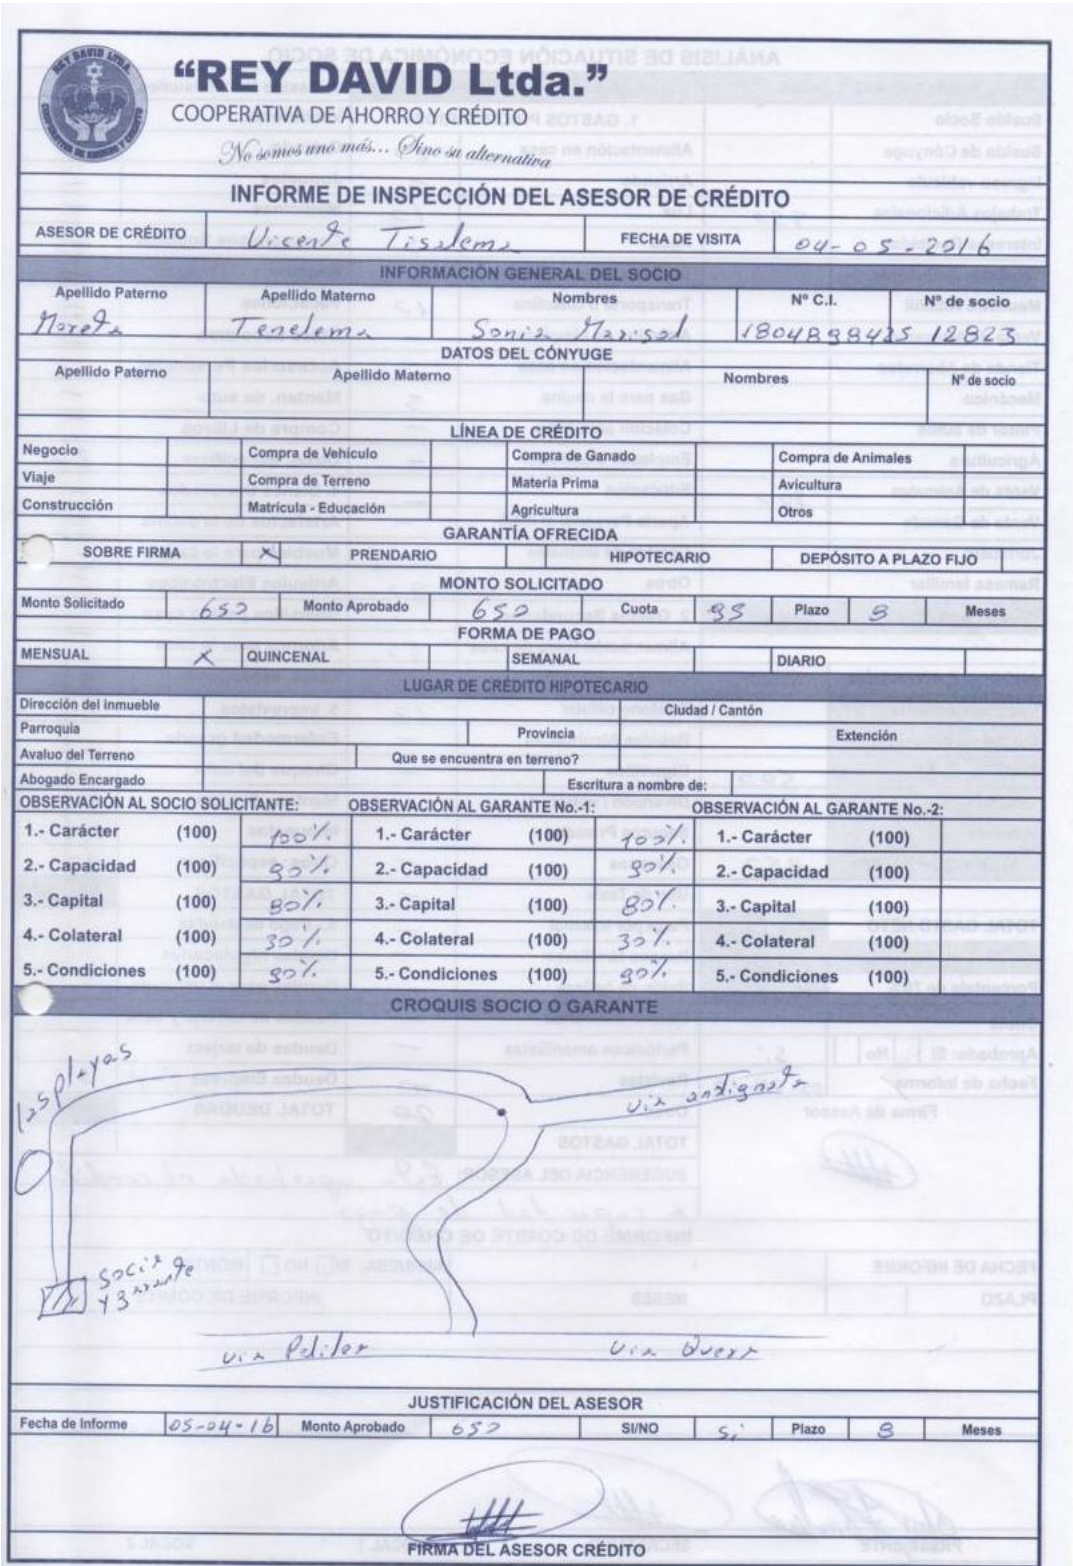 REY DAVID LTDA.
COOPERATIVA DE AHORRO Y CRÉDITO
“REY DAVID Ltda.”
COOPERATIVA DE AHORRO Y CRÉDITO
No somos uno más... Sino su alternativa
INFORME DE INSPECCIÓN DEL ASESOR DE CRÉDITO
ASESOR DE CRÉDITO Vicente Tisalema FECHA DE VISITA 04-05-2016
INFORMACIÓN GENERAL DEL SOCIO
Apellido Paterno Apellido Materno Nombres Nº C.I. Nº de socio
Moreta Tenelema Sonia Marisol 12823
DATOS DEL CÓNYUGE
Apellido Paterno Apellido Materno Nombres Nº de socio
LÍNEA DE CRÉDITO
Negocio Compra de Vehículo Compra de Ganado Compra de Animales
Viaje Compra de Terreno Materia Prima Avicultura
Construcción Matricula - Educación Agricultura Otros
GARANTÍA OFRECIDA
SOBRE FIRMA X PRENDARIO HIPOTECARIO DEPÓSITO A PLAZO FIJO
MONTO SOLICITADO
Monto Solicitado 650 Monto Aprobado 650 Cuota Plazo 8 Meses
FORMA DE PAGO
MENSUAL X QUINCENAL SEMANAL DIARIO
LUGAR DE CRÉDITO HIPOTECARIO
Dirección del inmueble Ciudad / Cantón
Parroquia Provincia Extención
Avaluo del Terreno Que se encuentra en terreno?
Abogado Encargado Escritura a nombre de:
OBSERVACIÓN AL SOCIO SOLICITANTE: OBSERVACIÓN AL GARANTE No.-1: OBSERVACIÓN AL GARANTE No.-2:
1.- Carácter (100) 100% 1.- Carácter (100) 100% 1.- Carácter (100)
2.- Capacidad (100) 90% 2.- Capacidad (100) 90% 2.- Capacidad (100)
3.- Capital (100) 80% 3.- Capital (100) 80% 3.- Capital (100)
4.- Colateral (100) 30% 4.- Colateral (100) 30% 4.- Colateral (100)
5.- Condiciones (100) 90% 5.- Condiciones (100) 90% 5.- Condiciones (100)
CROQUIS SOCIO O GARANTE
las playas
via antigua
socia
y garante
via Pelileo via Quero
JUSTIFICACIÓN DEL ASESOR
Fecha de Informe 05-04-16 Monto Aprobado 650 SI/NO si Plazo 8 Meses
FIRMA DEL ASESOR CRÉDITO